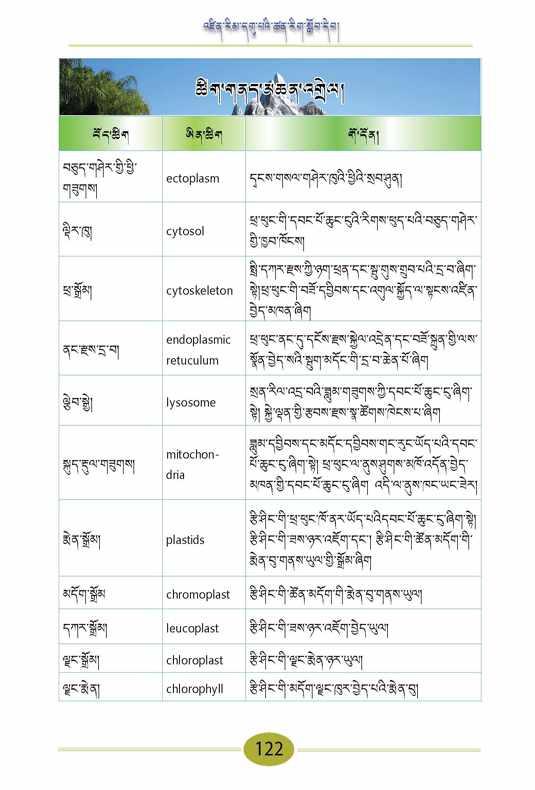 འཛིན་རིམ་དགུ་པའི་ཚན་རིག་སློབ་དེབ།
ཚིག་གནད་མཆན་འགྲེལ།
བོད་ཚིག
ཨིན་ཚིག
གོ་དོན།
བཅུད་གཤེར་གྱི་ཕྱི་
གཟུགས།
ectoplasm
དྭངས་གསལ་གཤེར་ཁུའི་ཕྱིའི་སྲབ་ཤུན།
ལྡིར་ཁུ།
cytosol
ཕྲ་ཕུང་གི་དབང་པོ་ཆུང་ངུའི་རིགས་ཕུད་པའི་བཅུད་གཤེར་
གྱི་ཁྱབ་ཁོངས།
ཕྲ་སྒྲོམ།
cytoskeleton
སྤྲི་དཀར་རྫས་ཀྱི་ཉག་ཕྲན་དང་སྦུ་གུས་གྲུབ་པའི་དྲ་བ་ཞིག་
སྟེ།ཕྲ་ཕུང་གི་བཟོ་དབྱིབས་དང་འགུལ་སྐྱོད་ལ་སྟངས་འཛིན་
བྱེད་མཁན་ཞིག
ནང་རྫས་དྲ་བ།
endoplasmic
retuculum
ཕྲ་ཕུང་ནང་དུ་དངོས་རྫས་སྐྱེལ་འདྲེན་དང་བཟོ་སྐྲུན་གྱི་ལས་
སྣོན་བྱེད་སའི་སྦུག་མདོང་གི་དྲ་བ་ཆེན་པོ་ཞིག
lysosome
སྲན་རིལ་འདྲ་བའི་ཟླུམ་གཟུགས་ཀྱི་དབང་པོ་ཆུང་ངུ་ཞིག་
སྟེ། སྐྱེ་ལྡན་གྱི་རྩབས་རྫས་སྣ་ཚོགས་ཁེངས་པ་ཞིག
སྐུད་རྡུལ་གཟུགས།
mitochon-
dria
ཟླུམ་དབྱིབས་དང་མདོང་དབྱིབས་གང་རུང་ཡོད་པའི་དབང་
པོ་ཆུང་ངུ་ཞིག་སྟེ། ཕྲ་ཕུང་ལ་ནུས་ཤུགས་མཁོ་འདོན་བྱེད་
མཁན་གྱི་དབང་པོ་ཆུང་ངུ་ཞིག འདི་ལ་ནུས་ཁང་ཡང་ཟེར།
རྨེན་སྒྲོམ།
plastids
རྩི་ཤིང་གི་ཕྲ་ཕུང་ཁོ་ནར་ཡོད་པའི་དབང་པོ་ཆུང་ངུ་ཞིག་སྟེ།
རྩི་ཤིང་གི་ཟས་ཉར་འཇོག་དང་། རྩི་ཤིང་གི་ཚོན་མདོག་གི་
རྨེན་བུ་གནས་ཡུལ་གྱི་སྒྲོམ་ཞིག
མདོག་སྒྲོམ
chromoplast
རྩི་ཤིང་གི་ཚོན་མདོག་གི་རྨེན་བུ་གནས་ཡུལ།
དཀར་སྒྲོམ།
leucoplast
རྩི་ཤིང་གི་ཟས་ཉར་འཇོག་བྱེད་ཡུལ།
ལྗང་སྒྲོམ།
chloroplast
རྩི་ཤིང་གི་ལྗང་རྨེན་ཉར་ཡུལ།
ལྗང་རྨེན།
chlorophyll
རྩི་ཤིང་གི་མདོག་ལྗང་ཁུར་བྱེད་པའི་རྨེན་བུ།
122